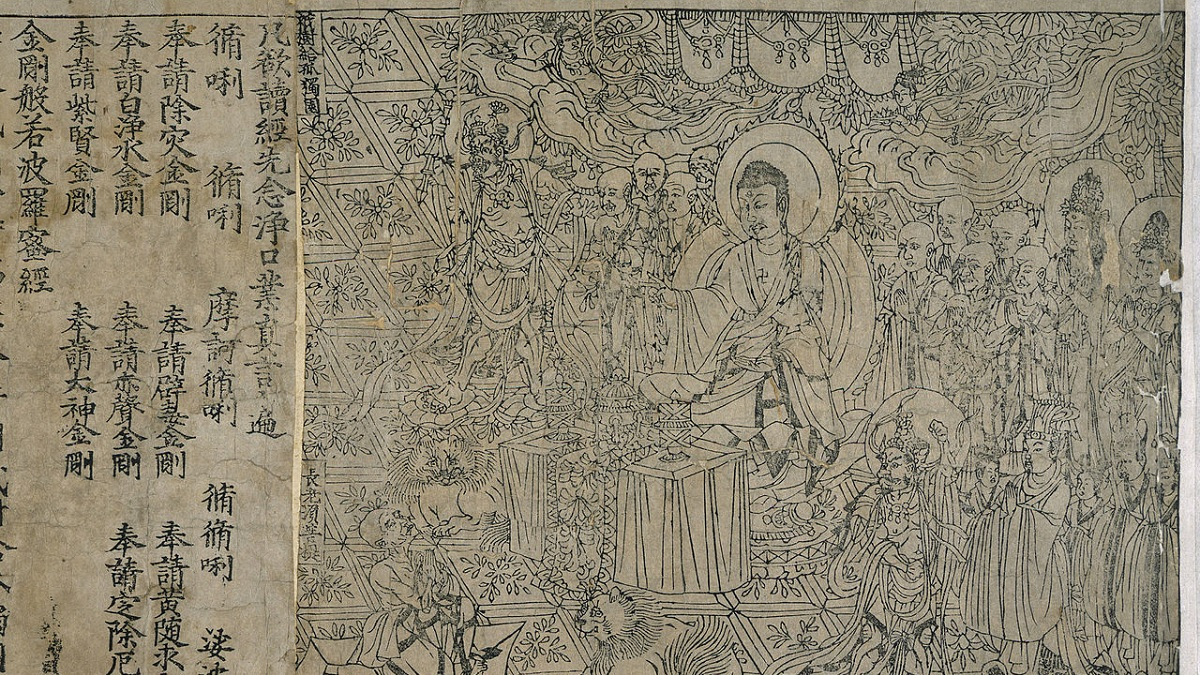 祇樹給孤獨園
長老須菩提
凡欲讀經先念淨口業真言 遍
脩唎 脩唎 摩訶脩唎 脩脩唎 娑
奉請除灾金剛 奉請辟毒金剛 奉請黃随求
奉請白淨水金剛 奉請赤聲金剛 奉請定除厄
奉請紫賢金剛 奉請大神金剛
金剛般若波羅蜜經